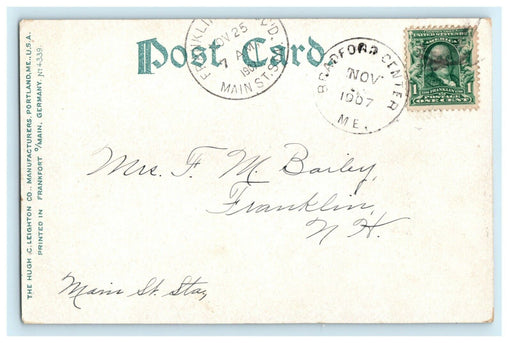 Post Card
NOV 25
7 A
MAIN ST. S
BRADFORD CENTER
NOV
1907
ME.
UNITED STATES
1 1
POSTAGE
ONE CENT
Mrs. F. M. Bailey,
Franklin,
N. H.
Main St. Sta,
THE HUGH C. LEIGHTON CO., MANUFACTURERS, PORTLAND, ME., U.S.A.
PRINTED IN FRANKFORT O/MAIN, GERMANY. No 4339